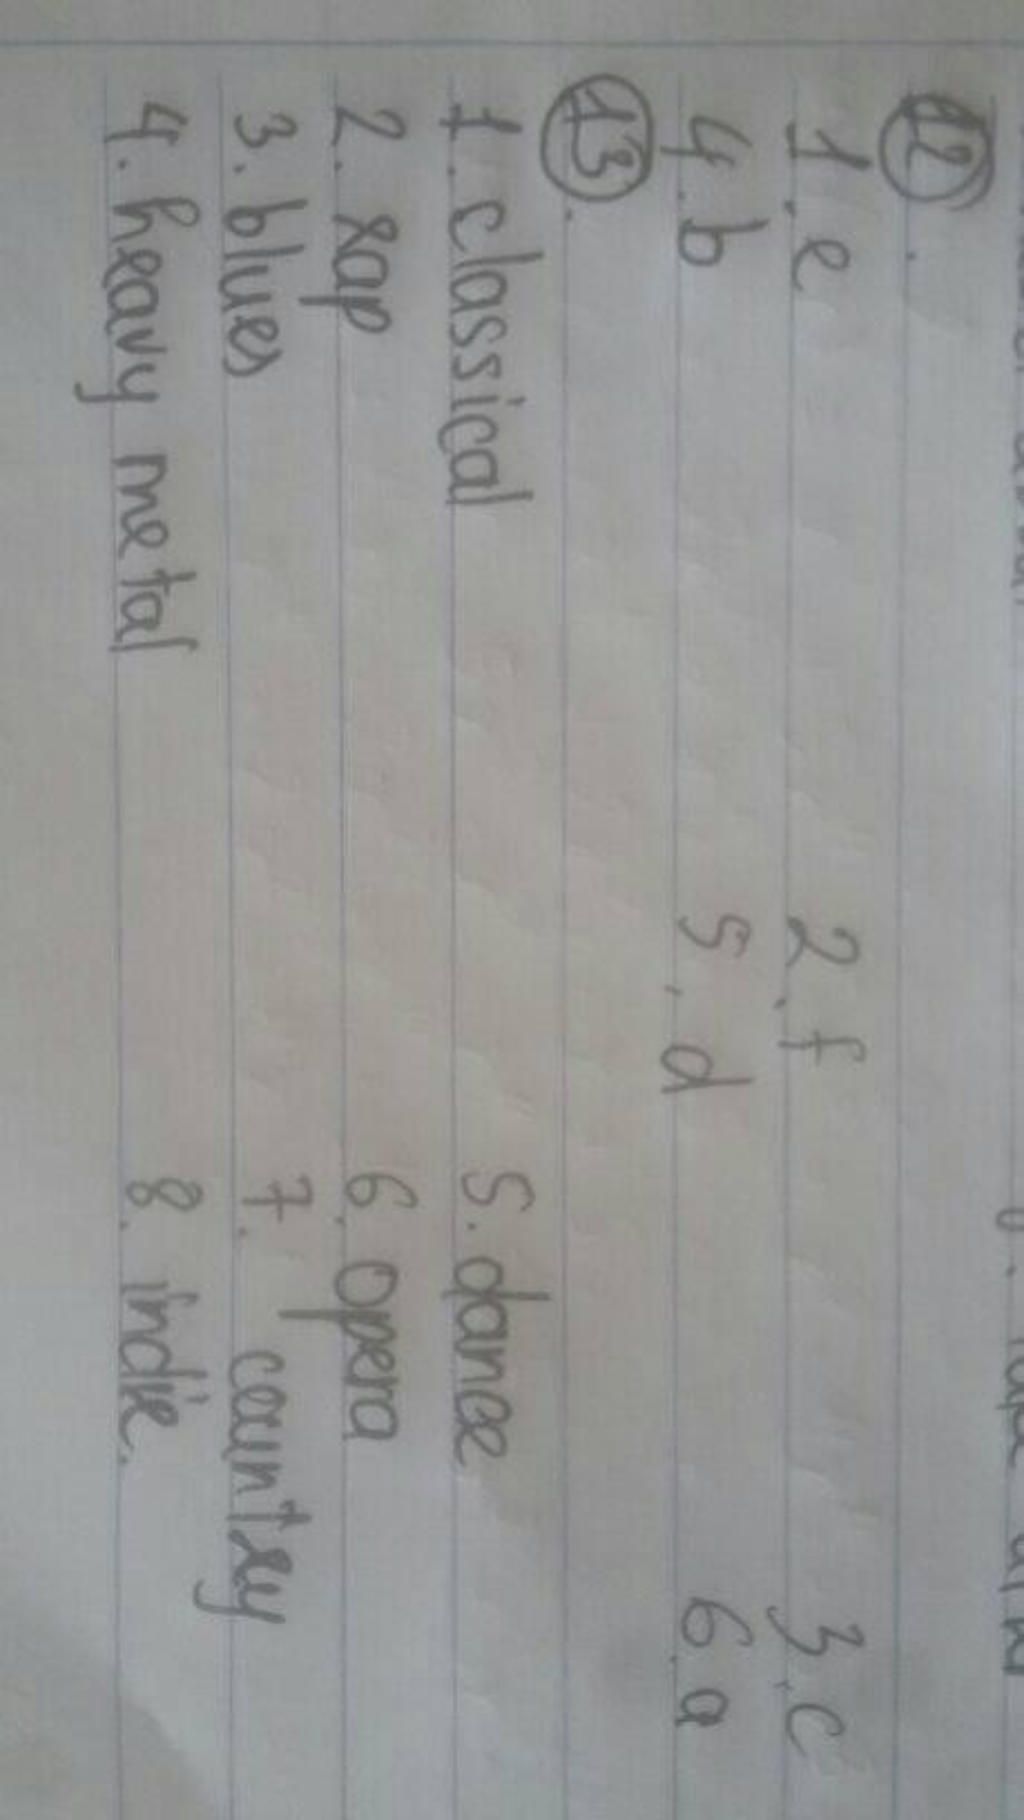 12.
1. e 2. f 3. c
4. b 5. d 6. a
13.
1. classical 5. dance
2. rap 6. opera
3. blues 7. country
4. heavy metal 8. indie.